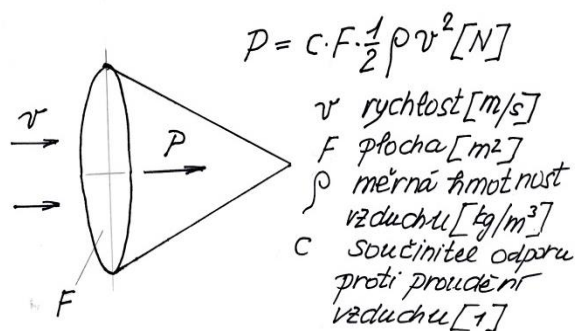 P = c·F·1/2 ρv² [N]
v
P
F
v rychlost [m/s]
F plocha [m²]
ρ měrná hmotnost
vzduchu [kg/m³]
c součinitel odporu
proti proudění
vzduchu [1]